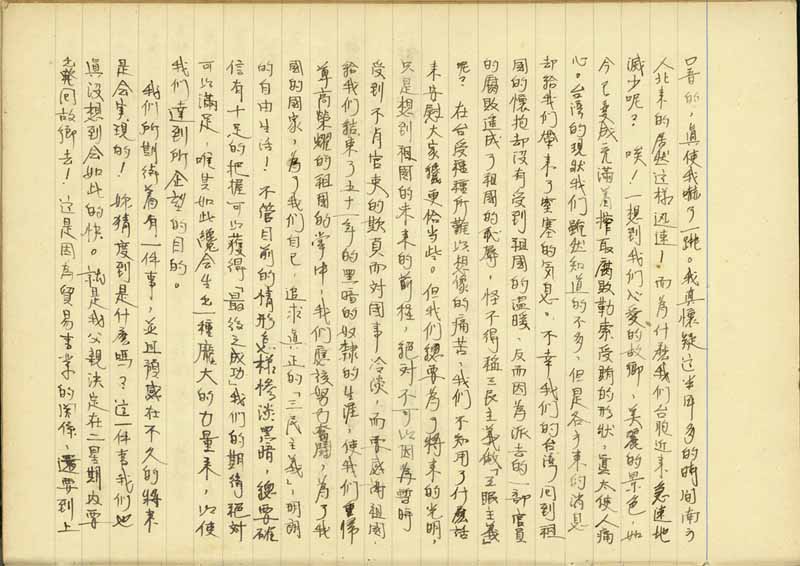 口音的，真使我嚇了一跳。我真懷疑這半年多的時间南方
人北來的居然这樣迅速！而為什麽我们台胞近来急速地
減少呢？ 唉！一想到我们心愛的故鄉，美麗的景色，如
今已变成充滿着搾取腐敗勒索受賄的形狀，真太使人痛
心。台湾的現狀我们雖然知道的不多，但是各方来的消息
却給我们帶来了窒塞的気息。不幸我们的台湾回到祖
國的懷抱却沒有受到祖国的温暖，反而因為派去的一部官員
的腐敗造成了祖国的恥辱，怪不得稱三民主義做「三眼主義」
呢？ 在台受種種所難以想像的痛苦，我们不知用了什麽話
来安慰大家纔更恰当些。但我们總要為了將来的光明，
只是想到祖國的未来的前程，絕对不可以因為暫時
受到不肖官吏的欺負而对國事冷淡，而要感谢祖國
給我们結束了五十一年的黑暗的奴隸的生涯，使我们重歸
尊高榮耀的祖國的掌中，我们應該努力奮鬪，為了我
國的國家，為了我们自己，追求真正的「三民主義」，明朗
的自由生活！ 不管目前的情形怎樣惨淡黑暗，總要確
信有十足的把握可以獲得「最後之成功」我们的期待絕对
可以滿足，唯其如此纔会生出一種龐大的力量来，以使
我们達到所企望的目的。
我们所期待着有一件事，並且預感在不久的將来
是会实現的！ 妳猜度到是什麽嗎？這一件事我们也
真沒想到会如此的快。就是我父親決定在二星期內要
動回故鄉去！ 这是因為貿易事業的関係，還要到上